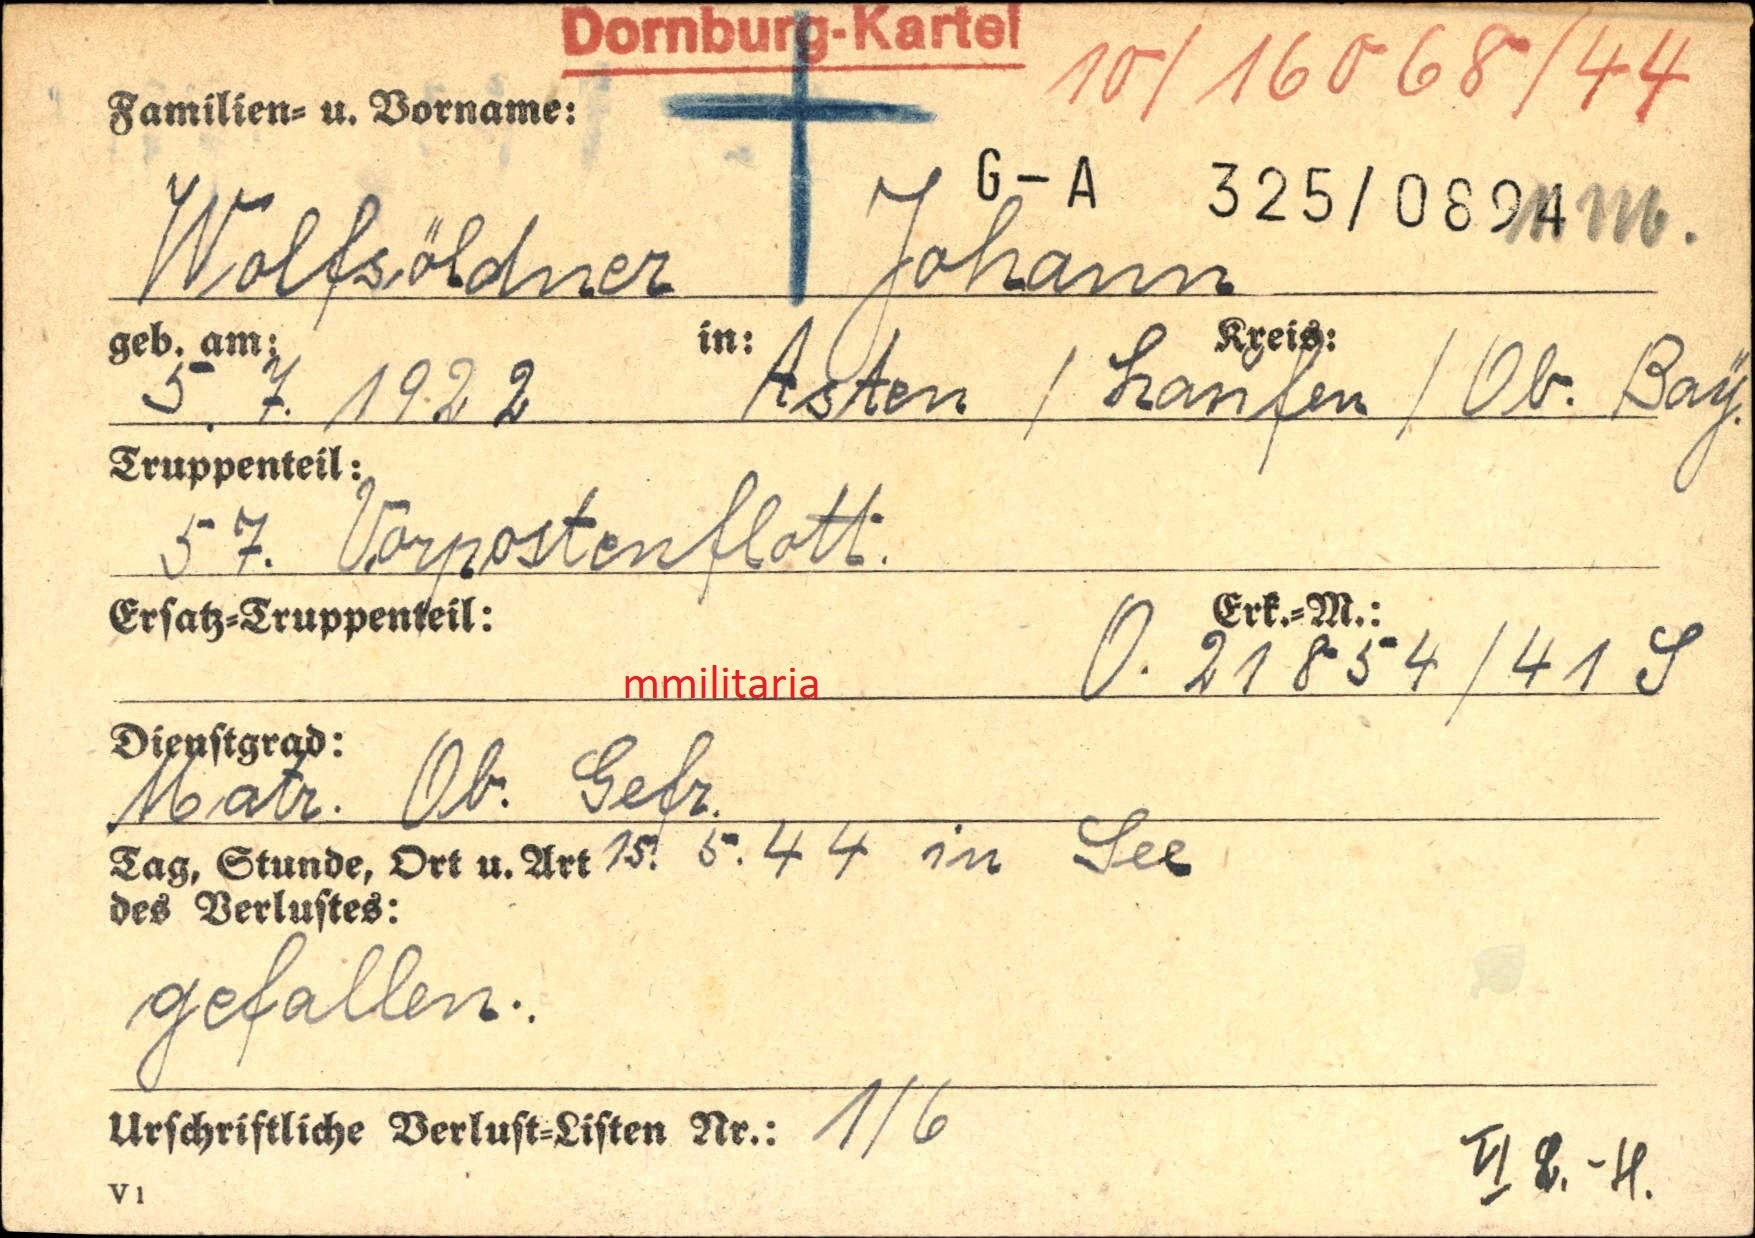 Dornburg-Kartei
10/16068/44
Familien- u. Vorname:
G-A 325/0894
Wolfsöldner Johann
geb. am: in: Kreis:
5. 7. 1922 Asten / Laufen / Ob. Bay.
Truppenteil:
57. Vorpostenflott.
Ersatz-Truppenteil: Erk.-M.:
O. 21854/41 S
mmilitaria
Dienstgrad:
Matr. Ob. Gefr.
Tag, Stunde, Ort u. Art 15. 5. 44 in See
des Verlustes:
gefallen.
Urschriftliche Verlust-Listen Nr.: 1/6
V1